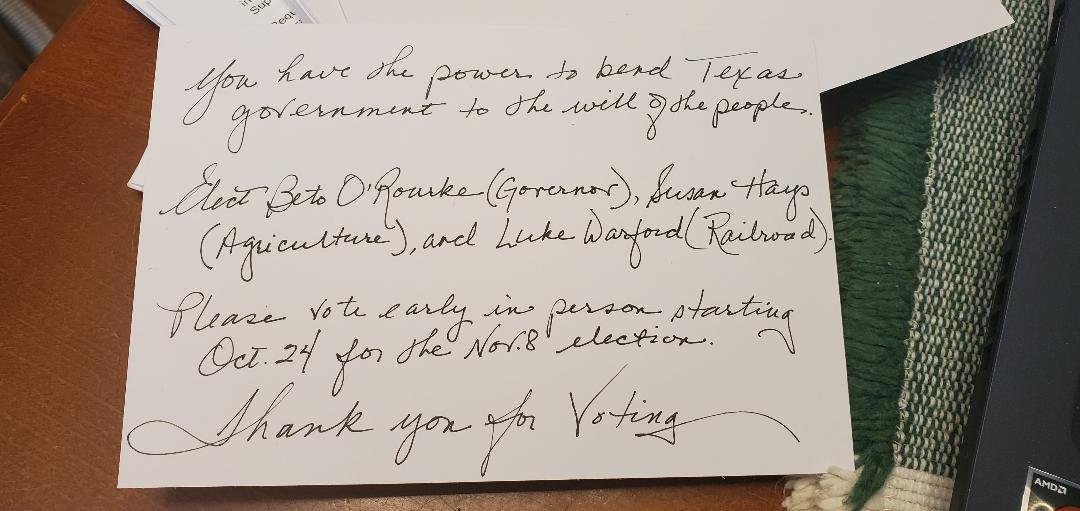 in
Sup
Requ
You have the power to bend Texas
government to the will of the people.
Elect Beto O'Rourke (Governor), Susan Hays
(Agriculture), and Luke Warford (Railroad).
Please vote early in person starting
Oct. 24 for the Nov. 8 election.
Thank you for Voting
AMD